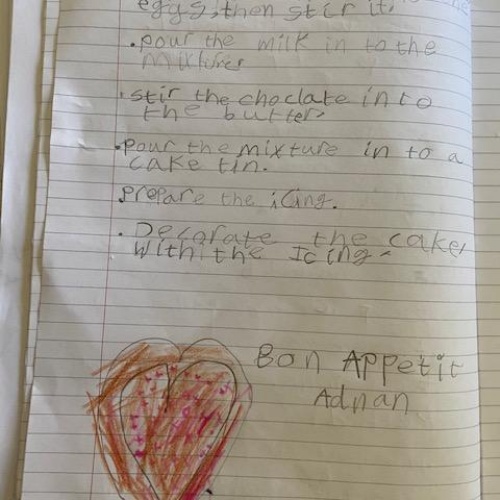 eggs, then stir it.
• pour the milk in to the
mixture.
• stir the choclate into
the butter.
• pour the mixture in to a
cake tin.
prepare the icing.
• Decorate the cake
with the Icing.
Bon Appetit
Adnan